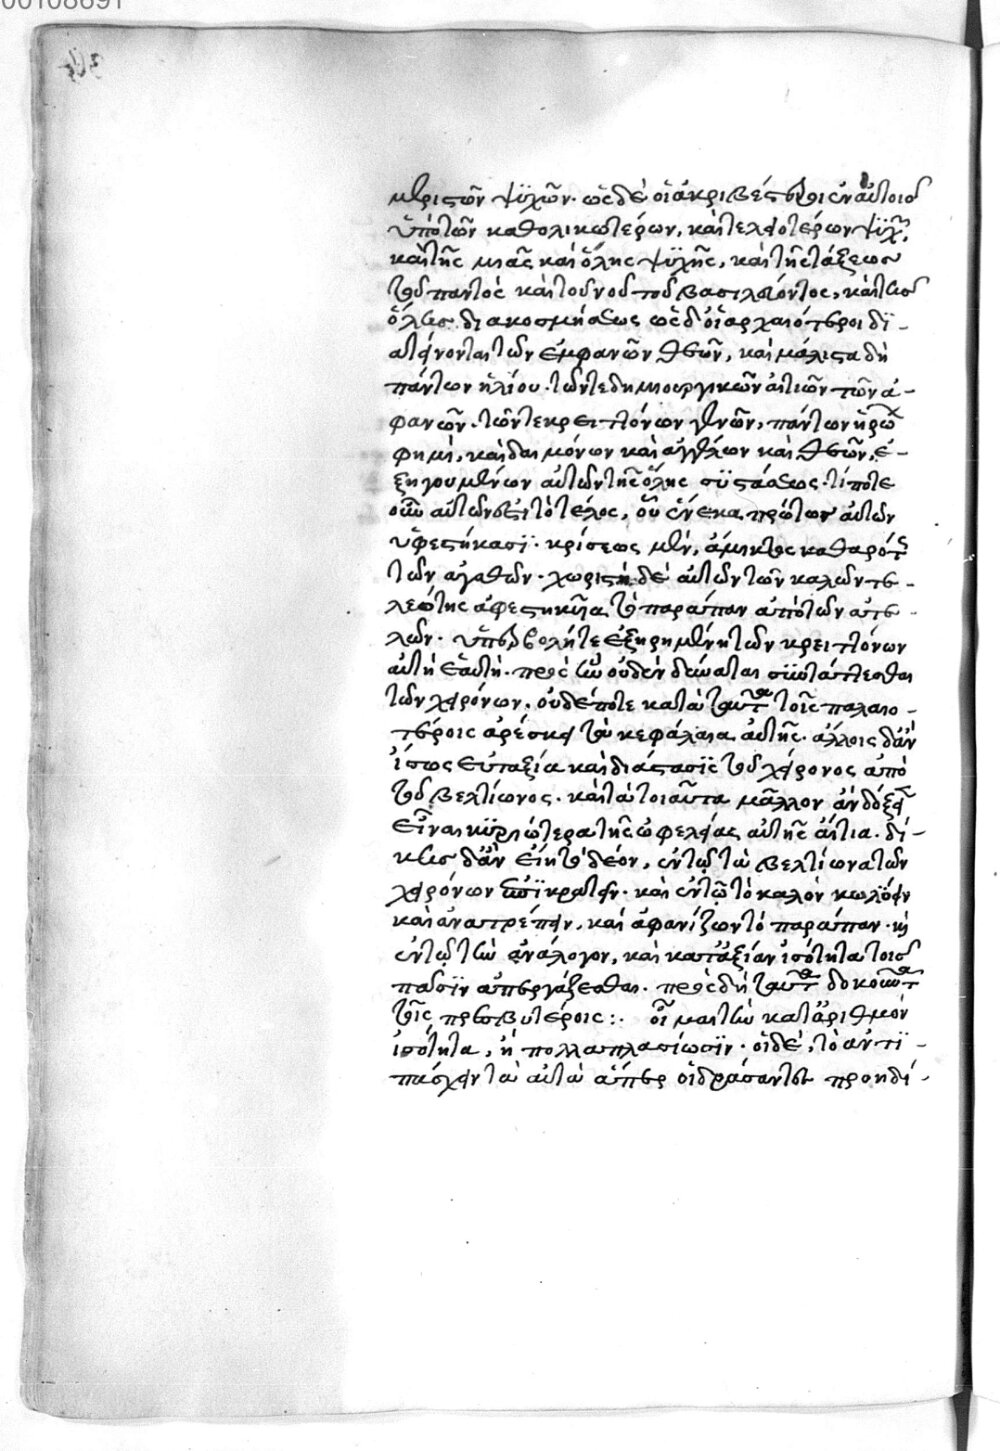 00108691
μεριστῶν ψϋχῶν. ὡς δὲ οἱ ἀκριβέστεροι ἐν αὐτοῖς
ὑπὸ τῶν καθολικωτέρων, καὶ τελειοτέρων ψϋχῶν,
καὶ τῆς μιᾶς καὶ ὅλης ψϋχῆς, καὶ τῆς τάξεως
τοῦ παντὸς καὶ τοῦ νοῦ τοῦ βασιλεύοντος, καὶ τῆς
ὅλης διακοσμήσεως ὡς δ' οἱ ἀρχαιότεροι δϊ-
ατείνονται τῶν ἐμφανῶν θεῶν, καὶ μάλιστα δὴ
πάντων ἡλίου. τῶν τε δημιουργικῶν αἰτιῶν τῶν ἀ-
φανῶν. τῶν τε κρειττόνων γενῶν, πάντων ἡρώων
φημὶ, καὶ δαιμόνων καὶ ἀγγέλων καὶ θεῶν, ἐ-
ξηγουμένων αὐτῶν τῆς ὅλης σϋστάσεως. τί ποτε
οὖν αὐτῶν ἐστὶ τὸ τέλος, οὗ ἕνεκα πρώτως αὐτῶν
ὑφεστήκασϊ. κρίσεως μὲν, ἄμικτος καθαρότης
τῶν ἀγαθῶν. χωριστὴ δὲ αὐτῶν τῶν καλῶν τε-
λειότης ἀφεστηκῆα τὸ παράπαν ἀπὸ τῶν ἀτε-
λῶν. ὑπερβολή τε ἐξηρημένη τῶν κρειττόνων
αὐτὴ ἑαυτῇ. πρὸς ἣν οὐδὲν δύναται συντάττεσθαι
τῶν χειρόνων. οὐδέποτε κατὰ ταῦτα τοῖς παλαιο-
τέροις ἀρέσκει τὰ κεφάλαια αὐτῆς. ἄλλοις δ' ἂν
ἴσως εὐταξία καὶ διάστασϊς τοῦ χείρονος ἀπὸ
τοῦ βελτίωνος. καὶ τὰ τοιαῦτα μᾶλλον ἂν δόξειεν
εἶναι κϋριώτερα τῆς ὠφελείας αὐτῆς αἴτια. δί-
κης δ' ἂν εἴη τὸ δέον, ἐν τῷ τὰ βελτίωνα τῶν
χειρόνων ἐπϊκρατεῖν. καὶ ἐν τῷ τὸ καλὸν κωλύειν
καὶ ἀνατρέπειν, καὶ ἀφανίζων τὸ παράπαν. καὶ
ἐν τῷ τὴν ἀνάλογον, καὶ κατ' ἀξίαν ἰσότητα τοῖς
πᾶσϊν ἀπεργάζεσθαι. πρὸς δὴ ταῦτα δοκοῦντα
τοῖς πρεσβυτέροις :. οἱ μὲν τὴν κατ' ἀριθμὸν
ἰσότητα, ἢ πολλαπλασίωσϊν. οἱ δὲ, τὸ ἀντϊ-
πάσχειν τὰ αὐτὰ ἅπερ οἱ δράσαντες προηδί-